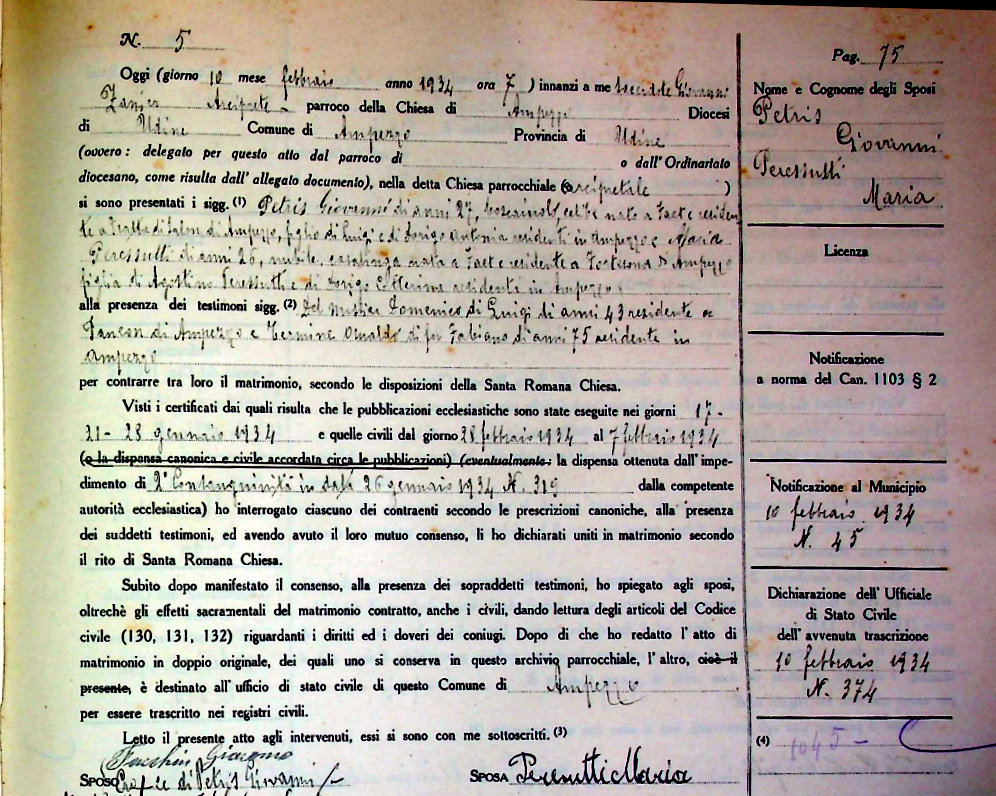 N. 5
Oggi (giorno 10 mese febbraio anno 1934 ora 7 ) innanzi a me Sacerdote Giovanni
Zanier Arciprete parroco della Chiesa di Ampezzo Diocesi
di Udine Comune di Ampezzo Provincia di Udine
(ovvero: delegato per questo atto dal parroco di o dall'Ordinariato
diocesano, come risulta dall'allegato documento), nella detta Chiesa parrocchiale (arcipretale )
si sono presentati i sigg. (1) Petris Giovanni di anni 27, celibe nato a e residen
te a di Ampezzo, figlio di Luigi e di Antonia residenti in Ampezzo e Maria
Peressutti di anni 26, nubile, casalinga nata a e residente a d'Ampezzo
figlia di Agostino Peressutti e di Caterina residenti in Ampezzo
alla presenza dei testimoni sigg. (2) Del Domenico di Luigi di anni 43 residente a
di Ampezzo e Osualdo di fu Fabiano di anni 75 residente in
Ampezzo
per contrarre tra loro il matrimonio, secondo le disposizioni della Santa Romana Chiesa.
Visti i certificati dai quali risulta che le pubblicazioni ecclesiastiche sono state eseguite nei giorni 17-
21-28 gennaio 1934 e quelle civili dal giorno 28 febbraio 1934 al 7 febbraio 1934
(o la dispensa canonica e civile accordata circa le pubblicazioni) (eventualmente: la dispensa ottenuta dall'impe-
dimento di 2° Consanguinità in data 26 gennaio 1934 N. 319 dalla competente
autorità ecclesiastica) ho interrogato ciascuno dei contraenti secondo le prescrizioni canoniche, alla presenza
dei suddetti testimoni, ed avendo avuto il loro mutuo consenso, li ho dichiarati uniti in matrimonio secondo
il rito di Santa Romana Chiesa.
Subito dopo manifestato il consenso, alla presenza dei sopraddetti testimoni, ho spiegato agli sposi,
oltrechè gli effetti sacramentali del matrimonio contratto, anche i civili, dando lettura degli articoli del Codice
civile (130, 131, 132) riguardanti i diritti ed i doveri dei coniugi. Dopo di che ho redatto l'atto di
matrimonio in doppio originale, dei quali uno si conserva in questo archivio parrocchiale, l'altro, cioè il
presente, è destinato all'ufficio di stato civile di questo Comune di Ampezzo
per essere trascritto nei registri civili.
Letto il presente atto agli intervenuti, essi si sono con me sottoscritti. (3)
Giacomo
SPOSO Croce di Petris Giovanni
SPOSA Peressutti Maria
Pag. 75
Nome e Cognome degli Sposi
Petris
Giovanni
Peressutti
Maria
Licenza
Notificazione
a norma del Can. 1103 § 2
Notificazione al Municipio
10 febbraio 1934
N. 45
Dichiarazione dell'Ufficiale
di Stato Civile
dell'avvenuta trascrizione
10 febbraio 1934
N. 374
(4) 1045 -